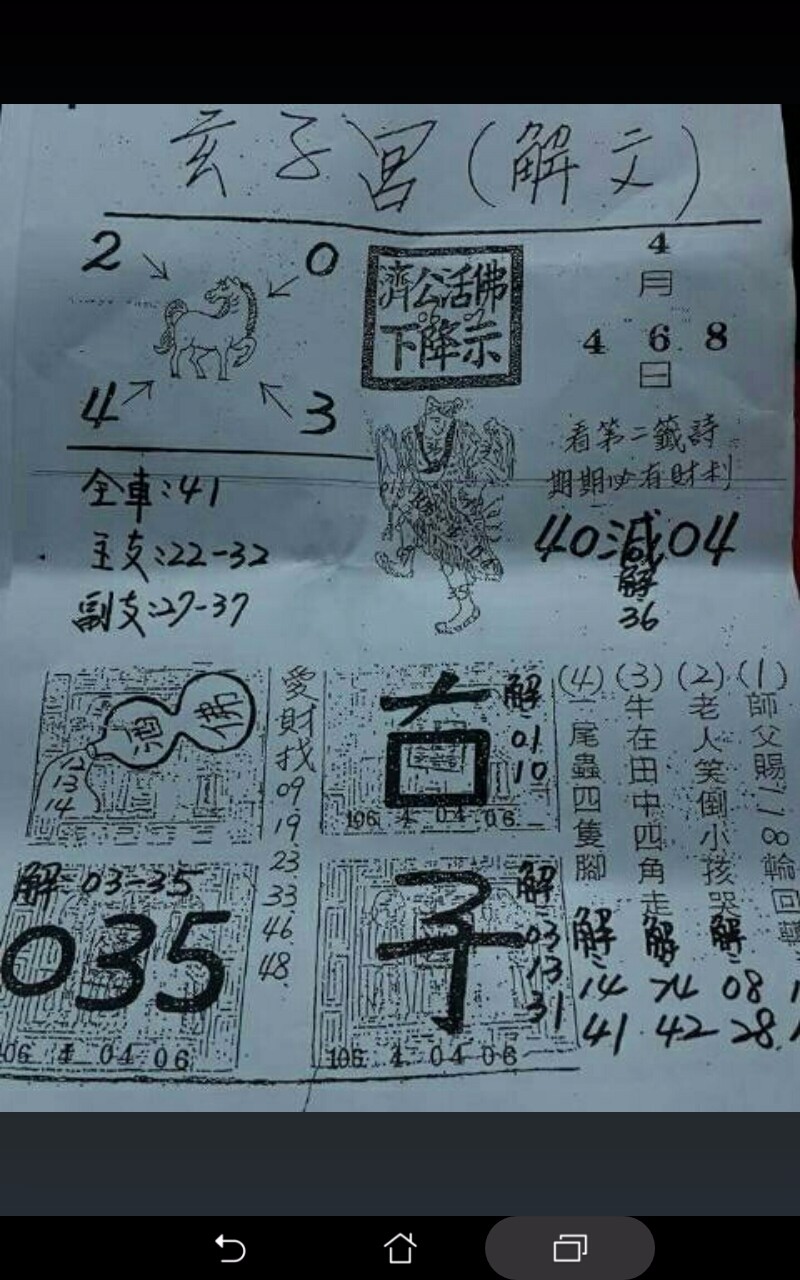 玄子宮(解文)
2 0
4 3
濟公活佛
下降示
4
月
4 6 8
日
看第二籤詩
期期必有財利
40減04
解
36
全車:41
主支:22-32
副支:27-37
酒 佛
12
13
14
愛財找
09
19
23
33
46
48
古
解
01
10
106 4 04 06
(1)師父賜718輪回轉
(2)老人笑倒小孩哭
解
08
28
(3)牛在田中四角走
解
24
42
(4)一尾蟲四隻腳
解
14
41
解 03-35
035
106 4 04 06
子
解
03
13
31
106 4 04 06